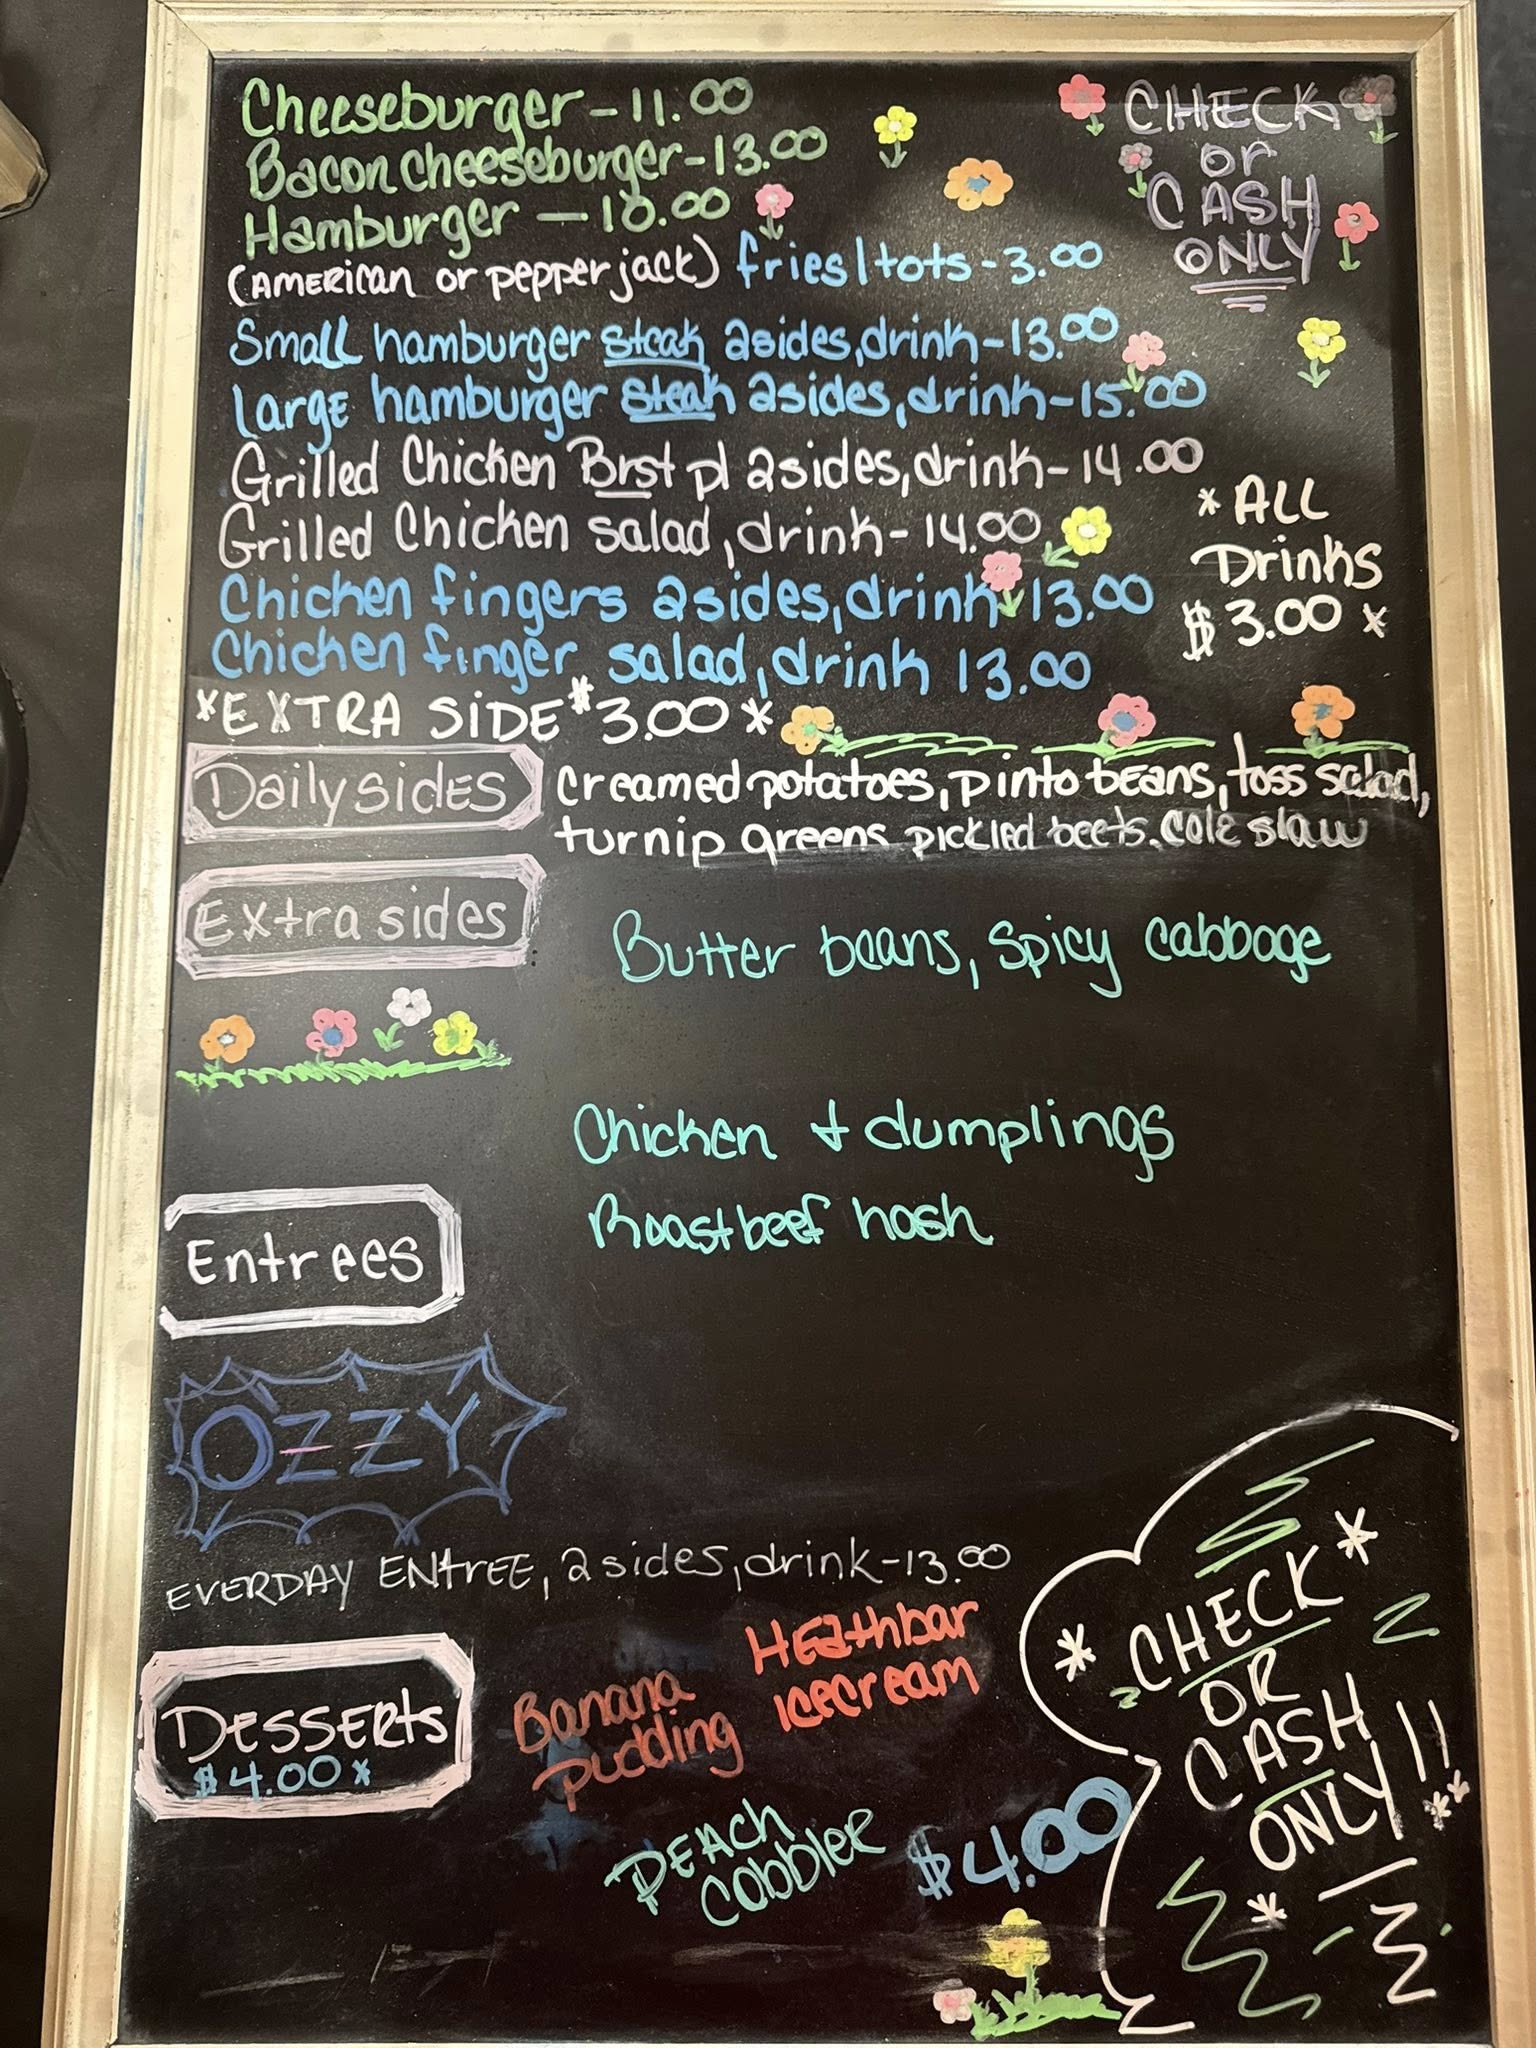 Cheeseburger - 11.00
Bacon cheeseburger - 13.00
Hamburger — 10.00
(AMERICAN or pepper jack) fries/tots - 3.00
CHECK
or
CASH
ONLY
Small hamburger steak 2 sides, drink - 13.00
Large hamburger steak 2 sides, drink - 15.00
Grilled Chicken Brst pl 2 sides, drink - 14.00
Grilled Chicken salad, drink - 14.00
Chicken fingers 2 sides, drink 13.00
Chicken finger salad, drink 13.00
* ALL
Drinks
$3.00 *
*EXTRA SIDE $3.00 *
Daily sides
creamed potatoes, pinto beans, toss salad,
turnip greens pickled beets. Cole slaw
Extra sides
Butter beans, spicy cabbage
Chicken + dumplings
Roastbeef hash
Entrees
OZZY
EVERDAY ENTREE, 2 sides, drink - 13.00
DESSERTS
$4.00 *
Banana
pudding
HEathbar
icecream
PEACH
CobblER
$4.00
* CHECK *
OR
CASH
ONLY!! **
*